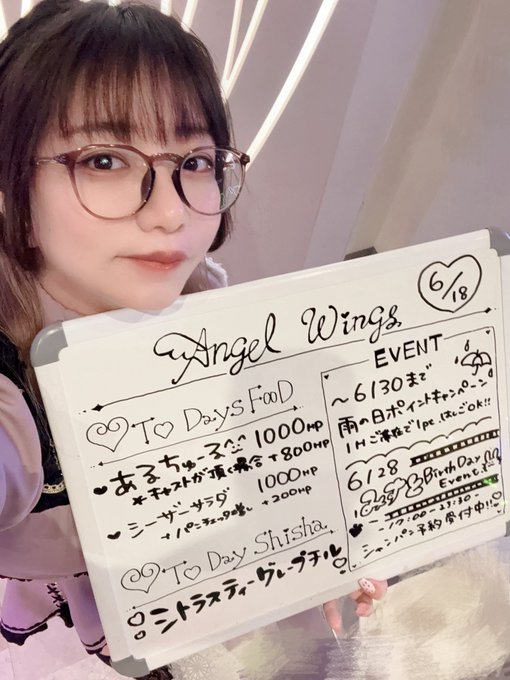 6/18
Angel Wings
To Days Food
あるちゅ〜る^^ 1000HP
*キャストが頂く場合 +800HP
シーザーサラダ 1000HP
+200HP
To Day Shisha
シトラスティーグレープチル
EVENT
〜6/30まで
雨の日ポイントキャンペーン
1Hご来店で1pt はしごOK!!
6/28
BirthDay
Event
17:00-21:30-
シャンパン予約受付中!!